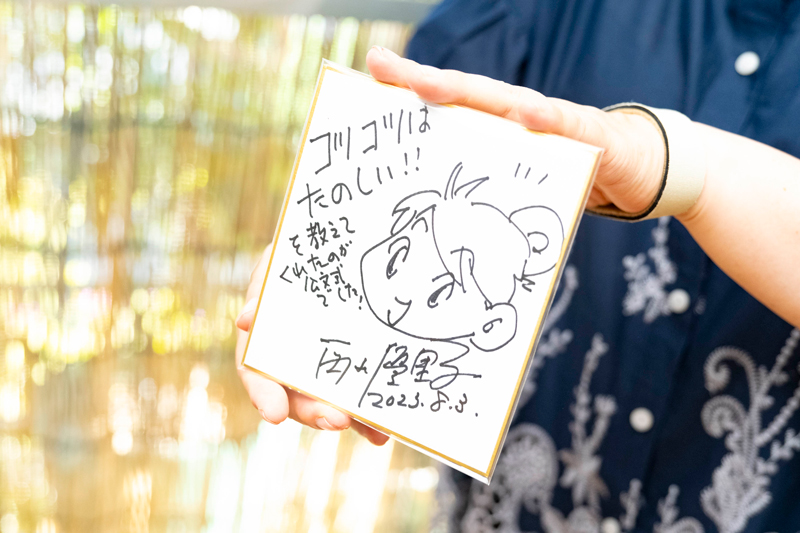 コツコツは
たのしい!!
を教えて
くれたのが
公文式
でした!
西山優里子
2023.8.3.